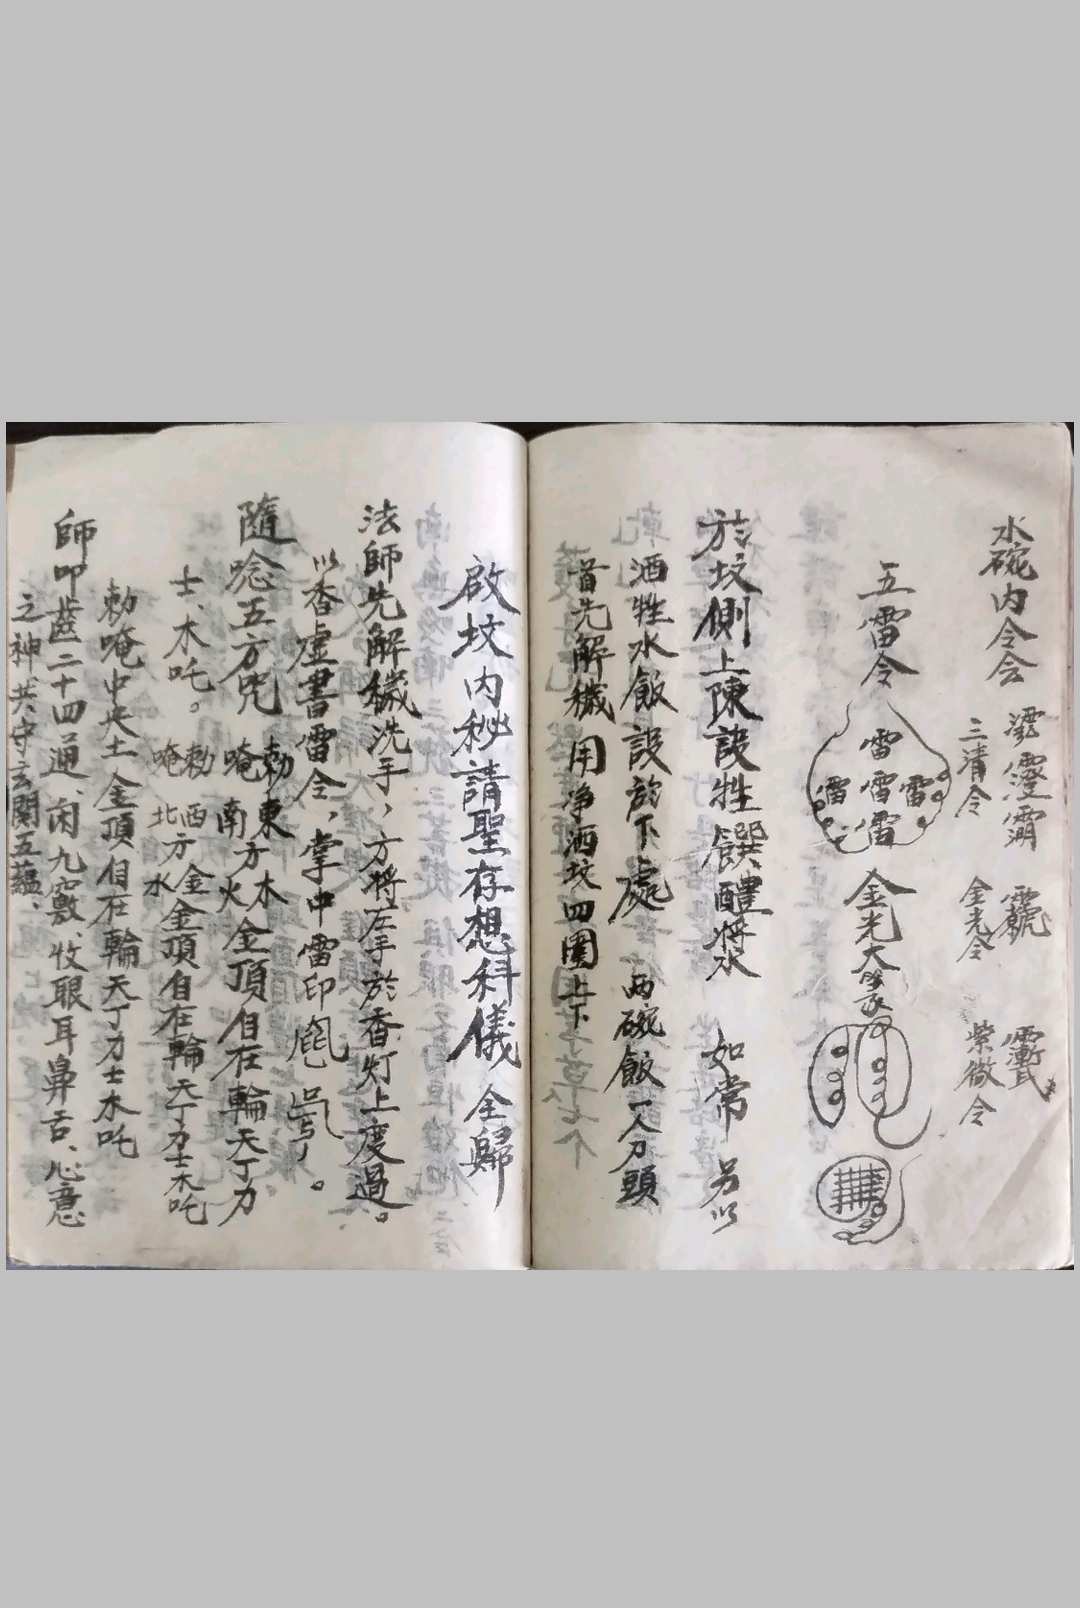 水碗内令会
三清令 金光令 紫微令
五雷令
雷
雷 雷 雷
雷
金光大
於坟側上陳設牲饌醴將水 如常 另以
酒牲水飯設於下處 两碗飯一人刀頭
首先解穢 用净洒坟四圍上下
啟坟内秘請聖存想科儀全歸
法師先解穢洗手，方將左手於香灯上度過。
以香虚書雷令，掌中雷印
隨唸五方咒 勅東方木
唵南方火金頂自在輪天丁力
士、木吒。 勅西方金
唵北方水金頂自在輪天丁力士木吒
勅唵中央土金頂自在輪天丁力士木吒
師叩齒二十四通、闭九竅、收眼耳鼻舌、心意
之神、共守玄関五蕴、